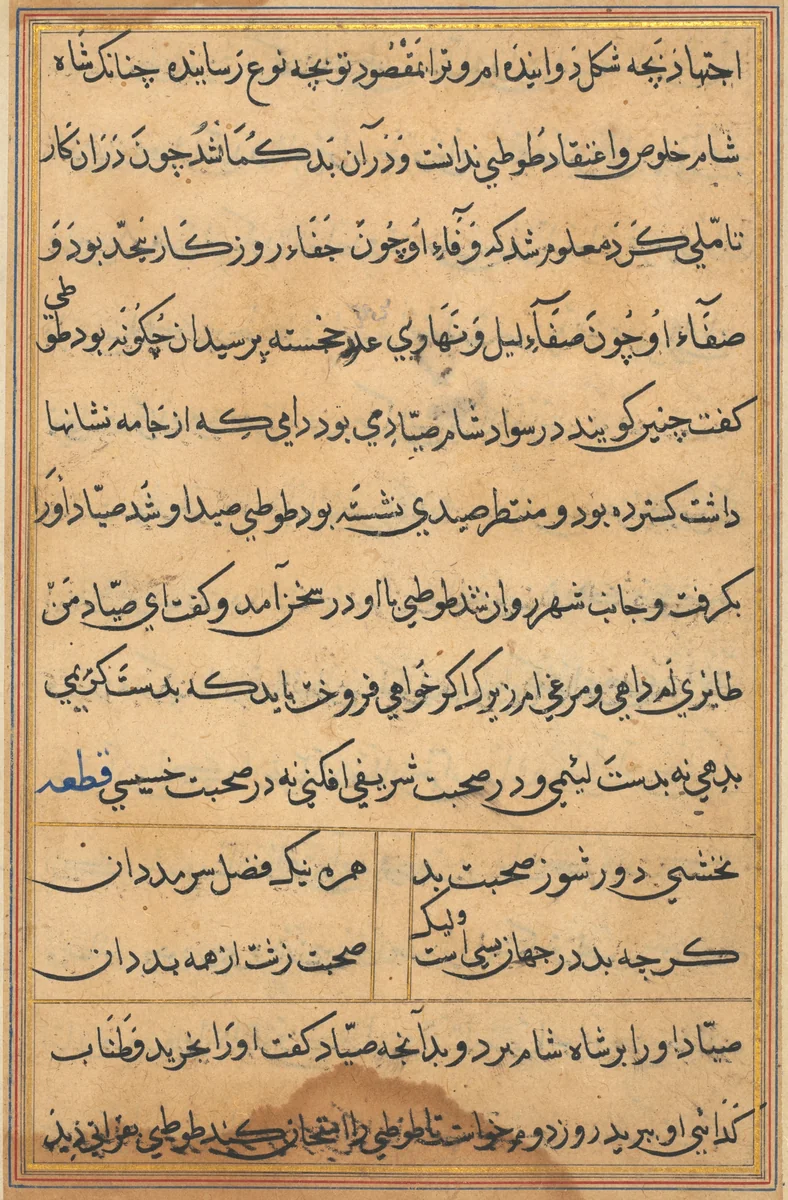 اجتهاد بچه شکل دوانیده ام و ترا بمقصود تو بچه نوع رسانیده چنانک شاه
شام خلوص و اعتقاد طوطی ندانست و در آن بد کمان شد چون در ان کار
تاملی کرد معلوم شد که وفاء او چون جفاء روزکار بیحد بود و
صفاء او چون صفاء لیل و نهاری عدد خجسته پرسید ان چکونه بود طوطی
کفت چنین کویند در سواد شام صیادی بود دامی که از جامه نشانها
داشت کسترده بود و منتظر صیدی نشسته بود طوطی صید او شد صیاد اورا
بکرفت و جانب شهر روان شد طوطی با او در سخن آمد و کفت ای صیاد من
طایری ام داهی و مرغی ام زیرک اکر خواهی فروخت باید که بدست کریمی
بدهی نه بدست لئیمی و در صحبت شریفی افکنی نه در صحبت خسیسی قطعه
نخشبی دور شو ز صحبت بد همره نیک فضل سرمد دان
کرچه بد در جهان بسی است ولیک صحبت زشت از همه بد دان
صیاد اورا بر شاه شام برد و بدآنچه صیاد کفت اورا بخرید و طناب
کدائی او ببرید روز دوم خواست تا طوطی را امتحان کند طوطی بفراتی دید